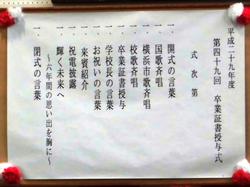 平成二十九年度
第四十九回 卒業証書授与式
式次第
一 開式の言葉
一 国歌斉唱
一 横浜市歌斉唱
一 校歌斉唱
一 卒業証書授与
一 学校長の言葉
一 お祝いの言葉
一 来賓紹介
一 祝電披露
一 輝く未来へ
～六年間の思い出を胸に～
一 閉式の言葉